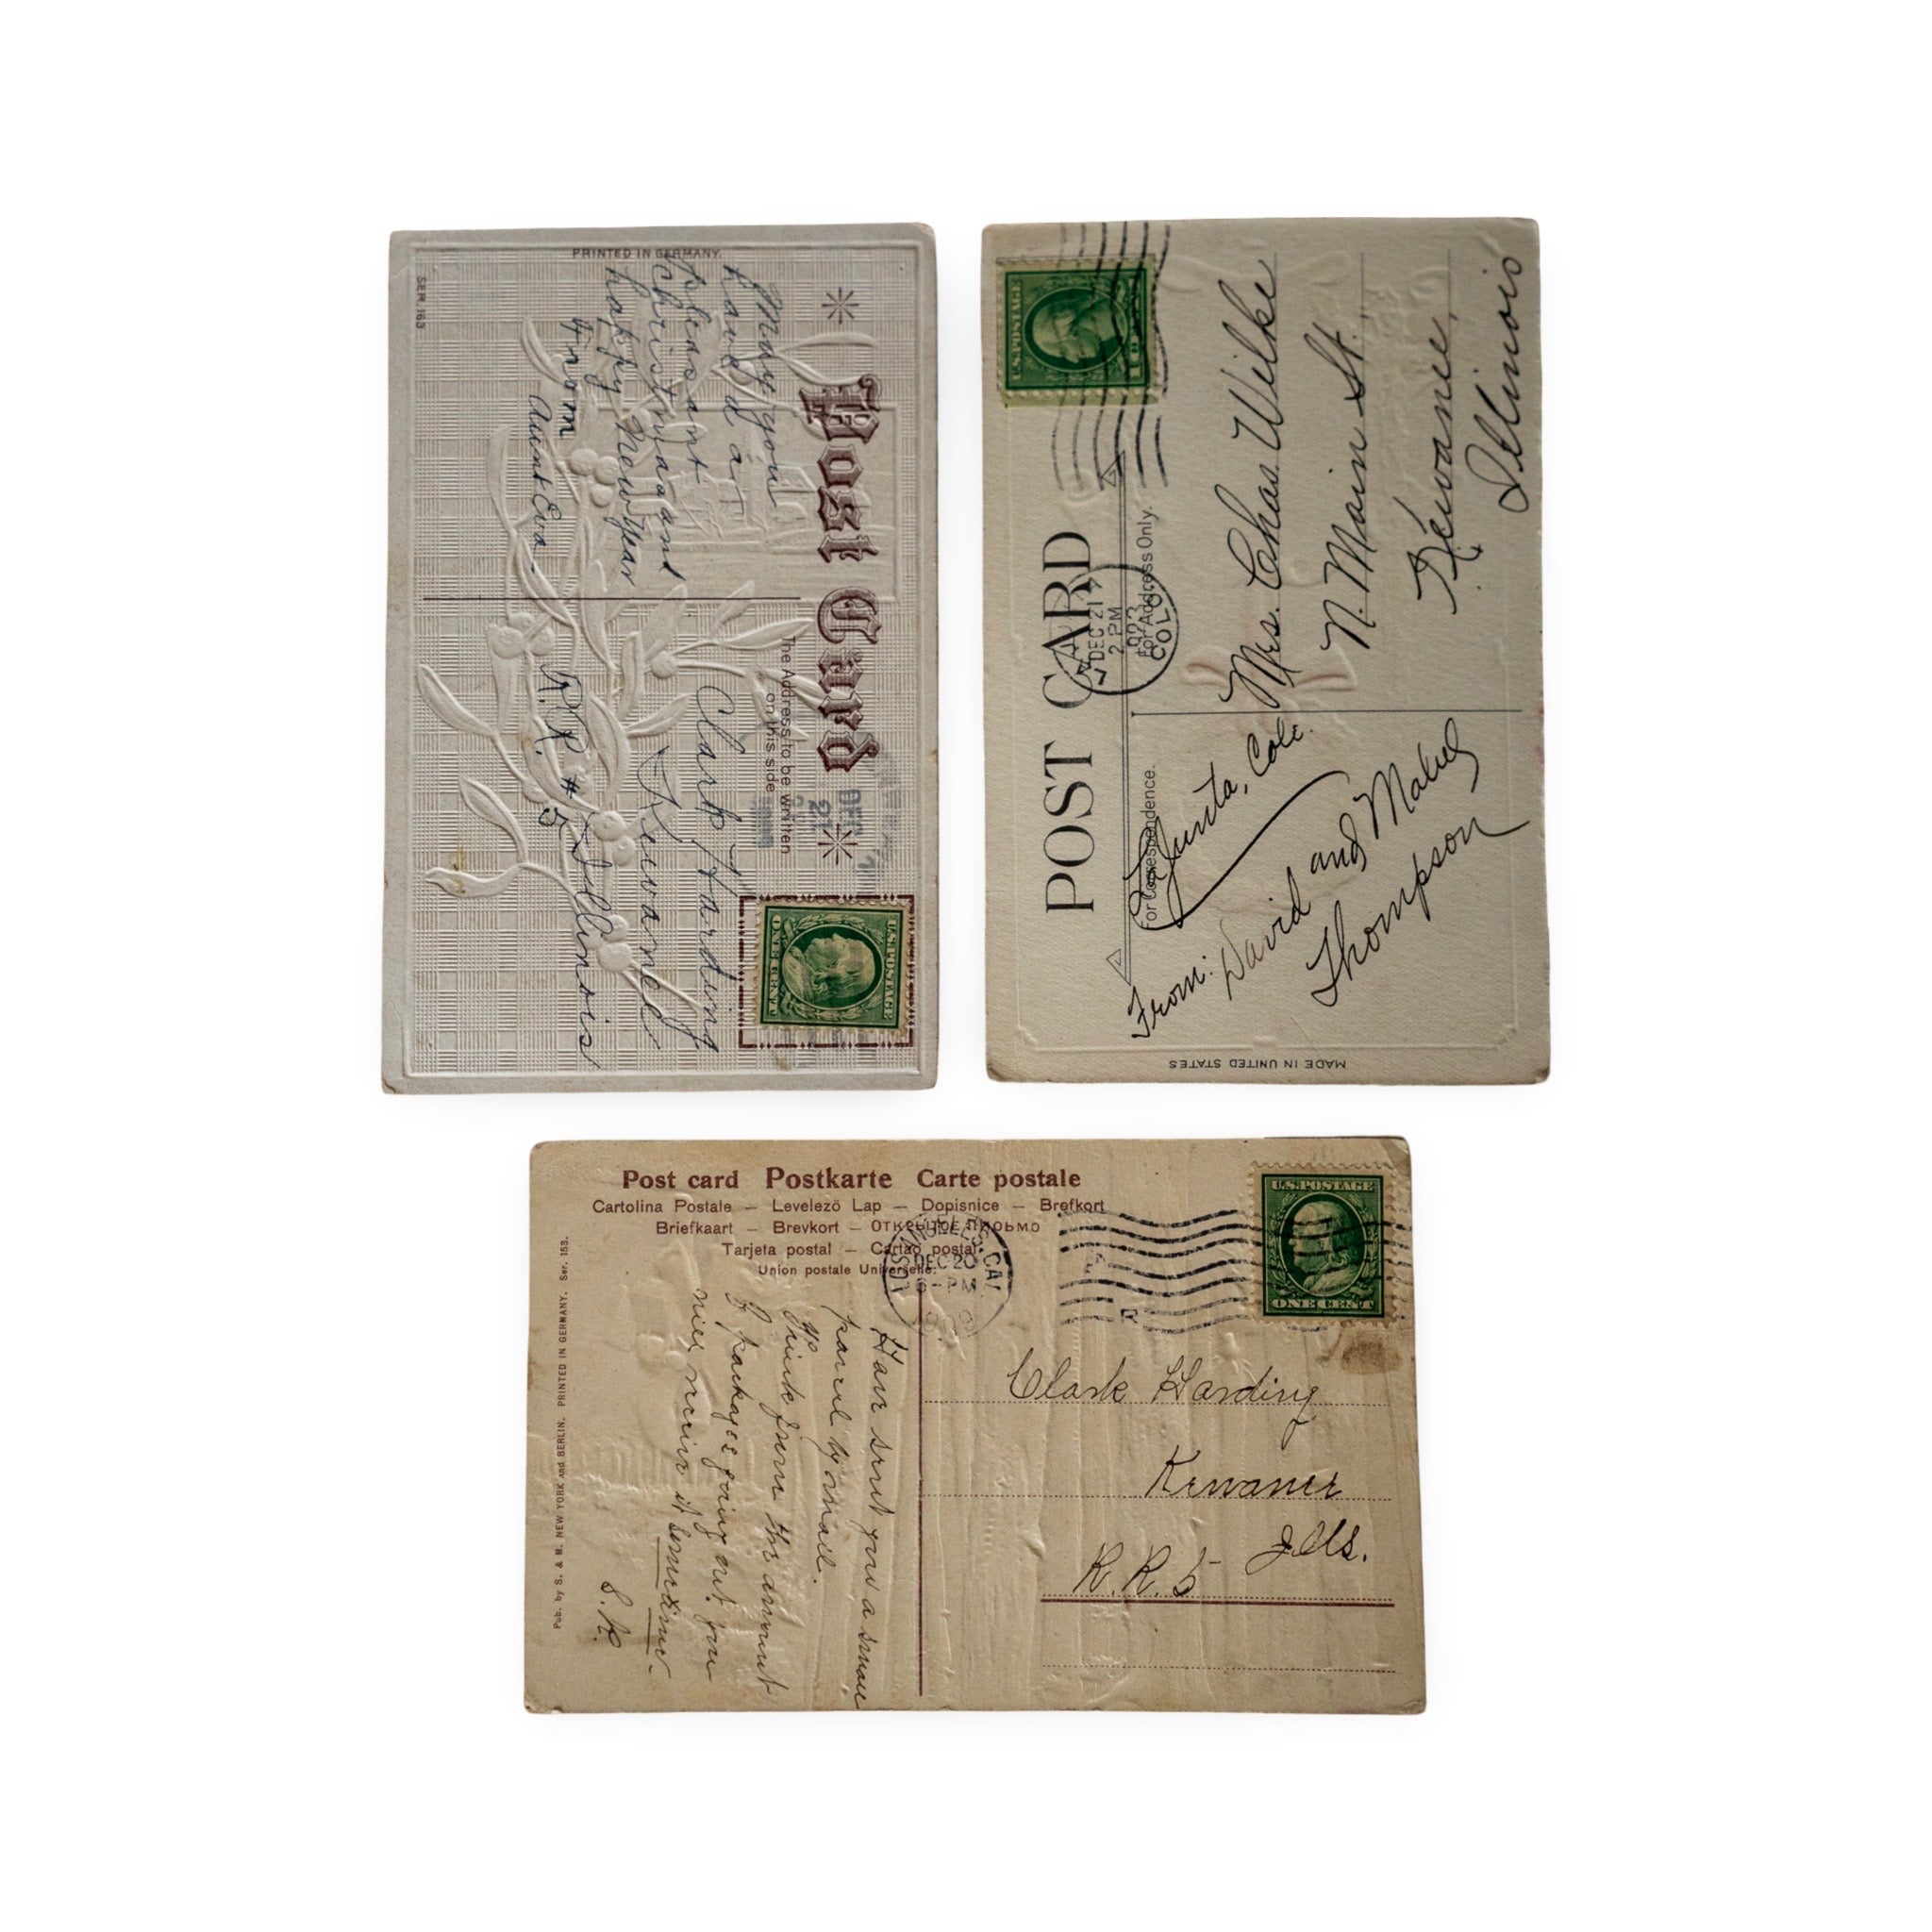 PRINTED IN GERMANY.
SER. 163
Post Card
The Address to be written
on this side
DEC
May you
have a
pleasant
Christmas and
happy New Year
from
Aunt Eva
Clark Harding
Kewanee
Illinois
R.R. #5
U.S. POSTAGE
ONE CENT
POST CARD
For Correspondence.
For Address Only.
U.S. POSTAGE
DEC 21
2 PM
1923
COLO.
Mrs. Chas. Wilke
N. Main St.,
Kewanee,
Illinois
La Junta, Colo.
From: David and Mabel
Thompson
MADE IN UNITED STATES
Post card Postkarte Carte postale
Cartolina Postale – Levelező Lap – Dopisnice – Brefkort
Briefkaart – Brevkort – ОТКРЫТОЕ ПИСЬМО
Tarjeta postal – Cartao postal
Union postale Universelle.
LOS ANGELES, CAL.
DEC 20
6 – PM
U.S. POSTAGE
ONE CENT
Clark Harding
Kewanee
Ills.
R. R. 5
Have sent you a small
parcel by mail.
Think from the amount
of packages going out you
will receive it sometime.
S. H.
Pub. by S. & M. NEW YORK and BERLIN. PRINTED IN GERMANY. Ser. 153.